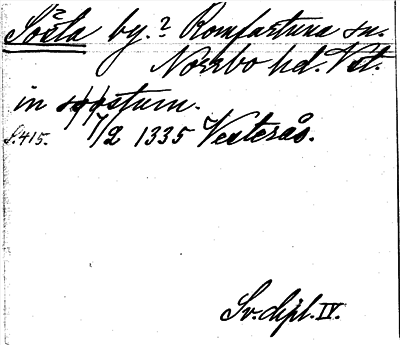 Sörta by.? Romfartuna sn.
Norrbo hd. Vstl.
in søøstum.
S. 415. 7/2 1335 Vesterås.
Sv. dipl. IV.